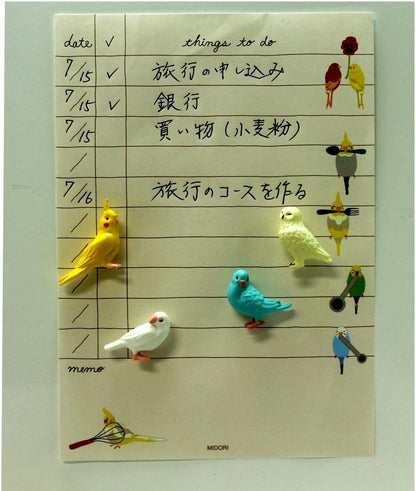 date ✓ things to do
7/15 ✓ 旅行の申し込み
7/15 ✓ 銀行
7/15 買い物(小麦粉)
/
7/16 旅行のコースを作る
/
/
/
/
memo
MIDORI